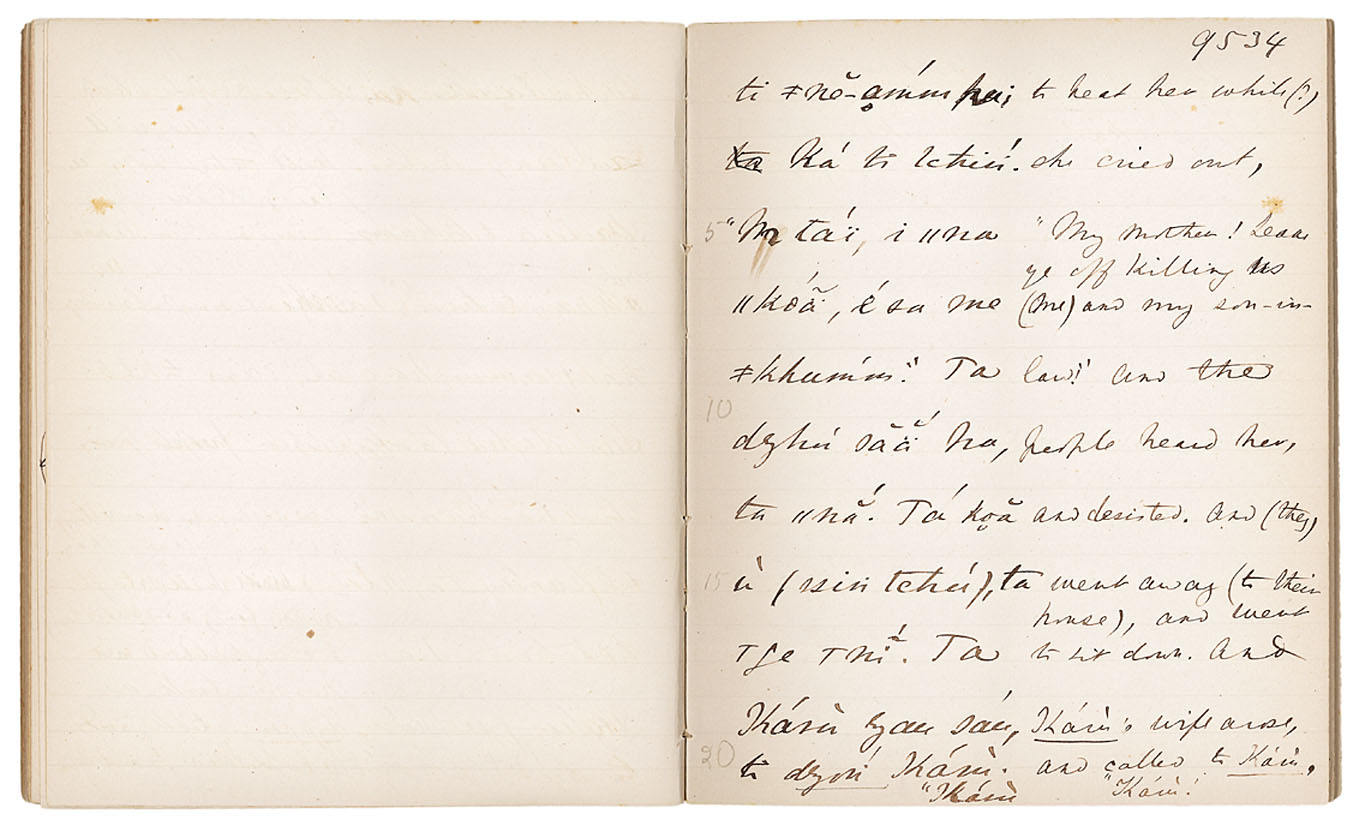 9534
ti ǂnĕ-ạḿm ha; to beat her while (?)
Ká ti ǀchúí. she cried out,
5 "M táí, i ǁna "My mother! Leave
ye off killing us
ǁkóă, é sa me (me) and my son-in-
ǂkhuḿm!" Ta law!" and the
10
dzhú săắ ha, people heard her,
ta ǁnắ. Tá kọă and desisted. And (they)
15 ù (ssin tchú), ta went away (to their
house), and went
ge nĭ́. Ta to sit down. And
Kárù zau sáu, Kárù's wife arose,
20 ti dzoú Kárù. and called to Kárù,
"Kárù "Kárù!